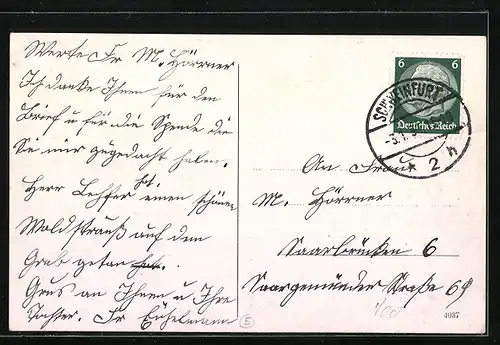 Werte Fr M. Hörrner
Ich danke Ihnen für den
Brief u für die Spende die
Sie mir zugedacht haben.
Herr hat einen schönen
Waldstrauß auf dem
Grab getan hat.
Grus an Ihnen u Ihre
Tochter. Fr
6 6
Deutsches Reich
SCHWEINFURT
* 2 h
An Frau
M. Hörrner
Saarbrücken 6
Saargemünder Straße 69
4037